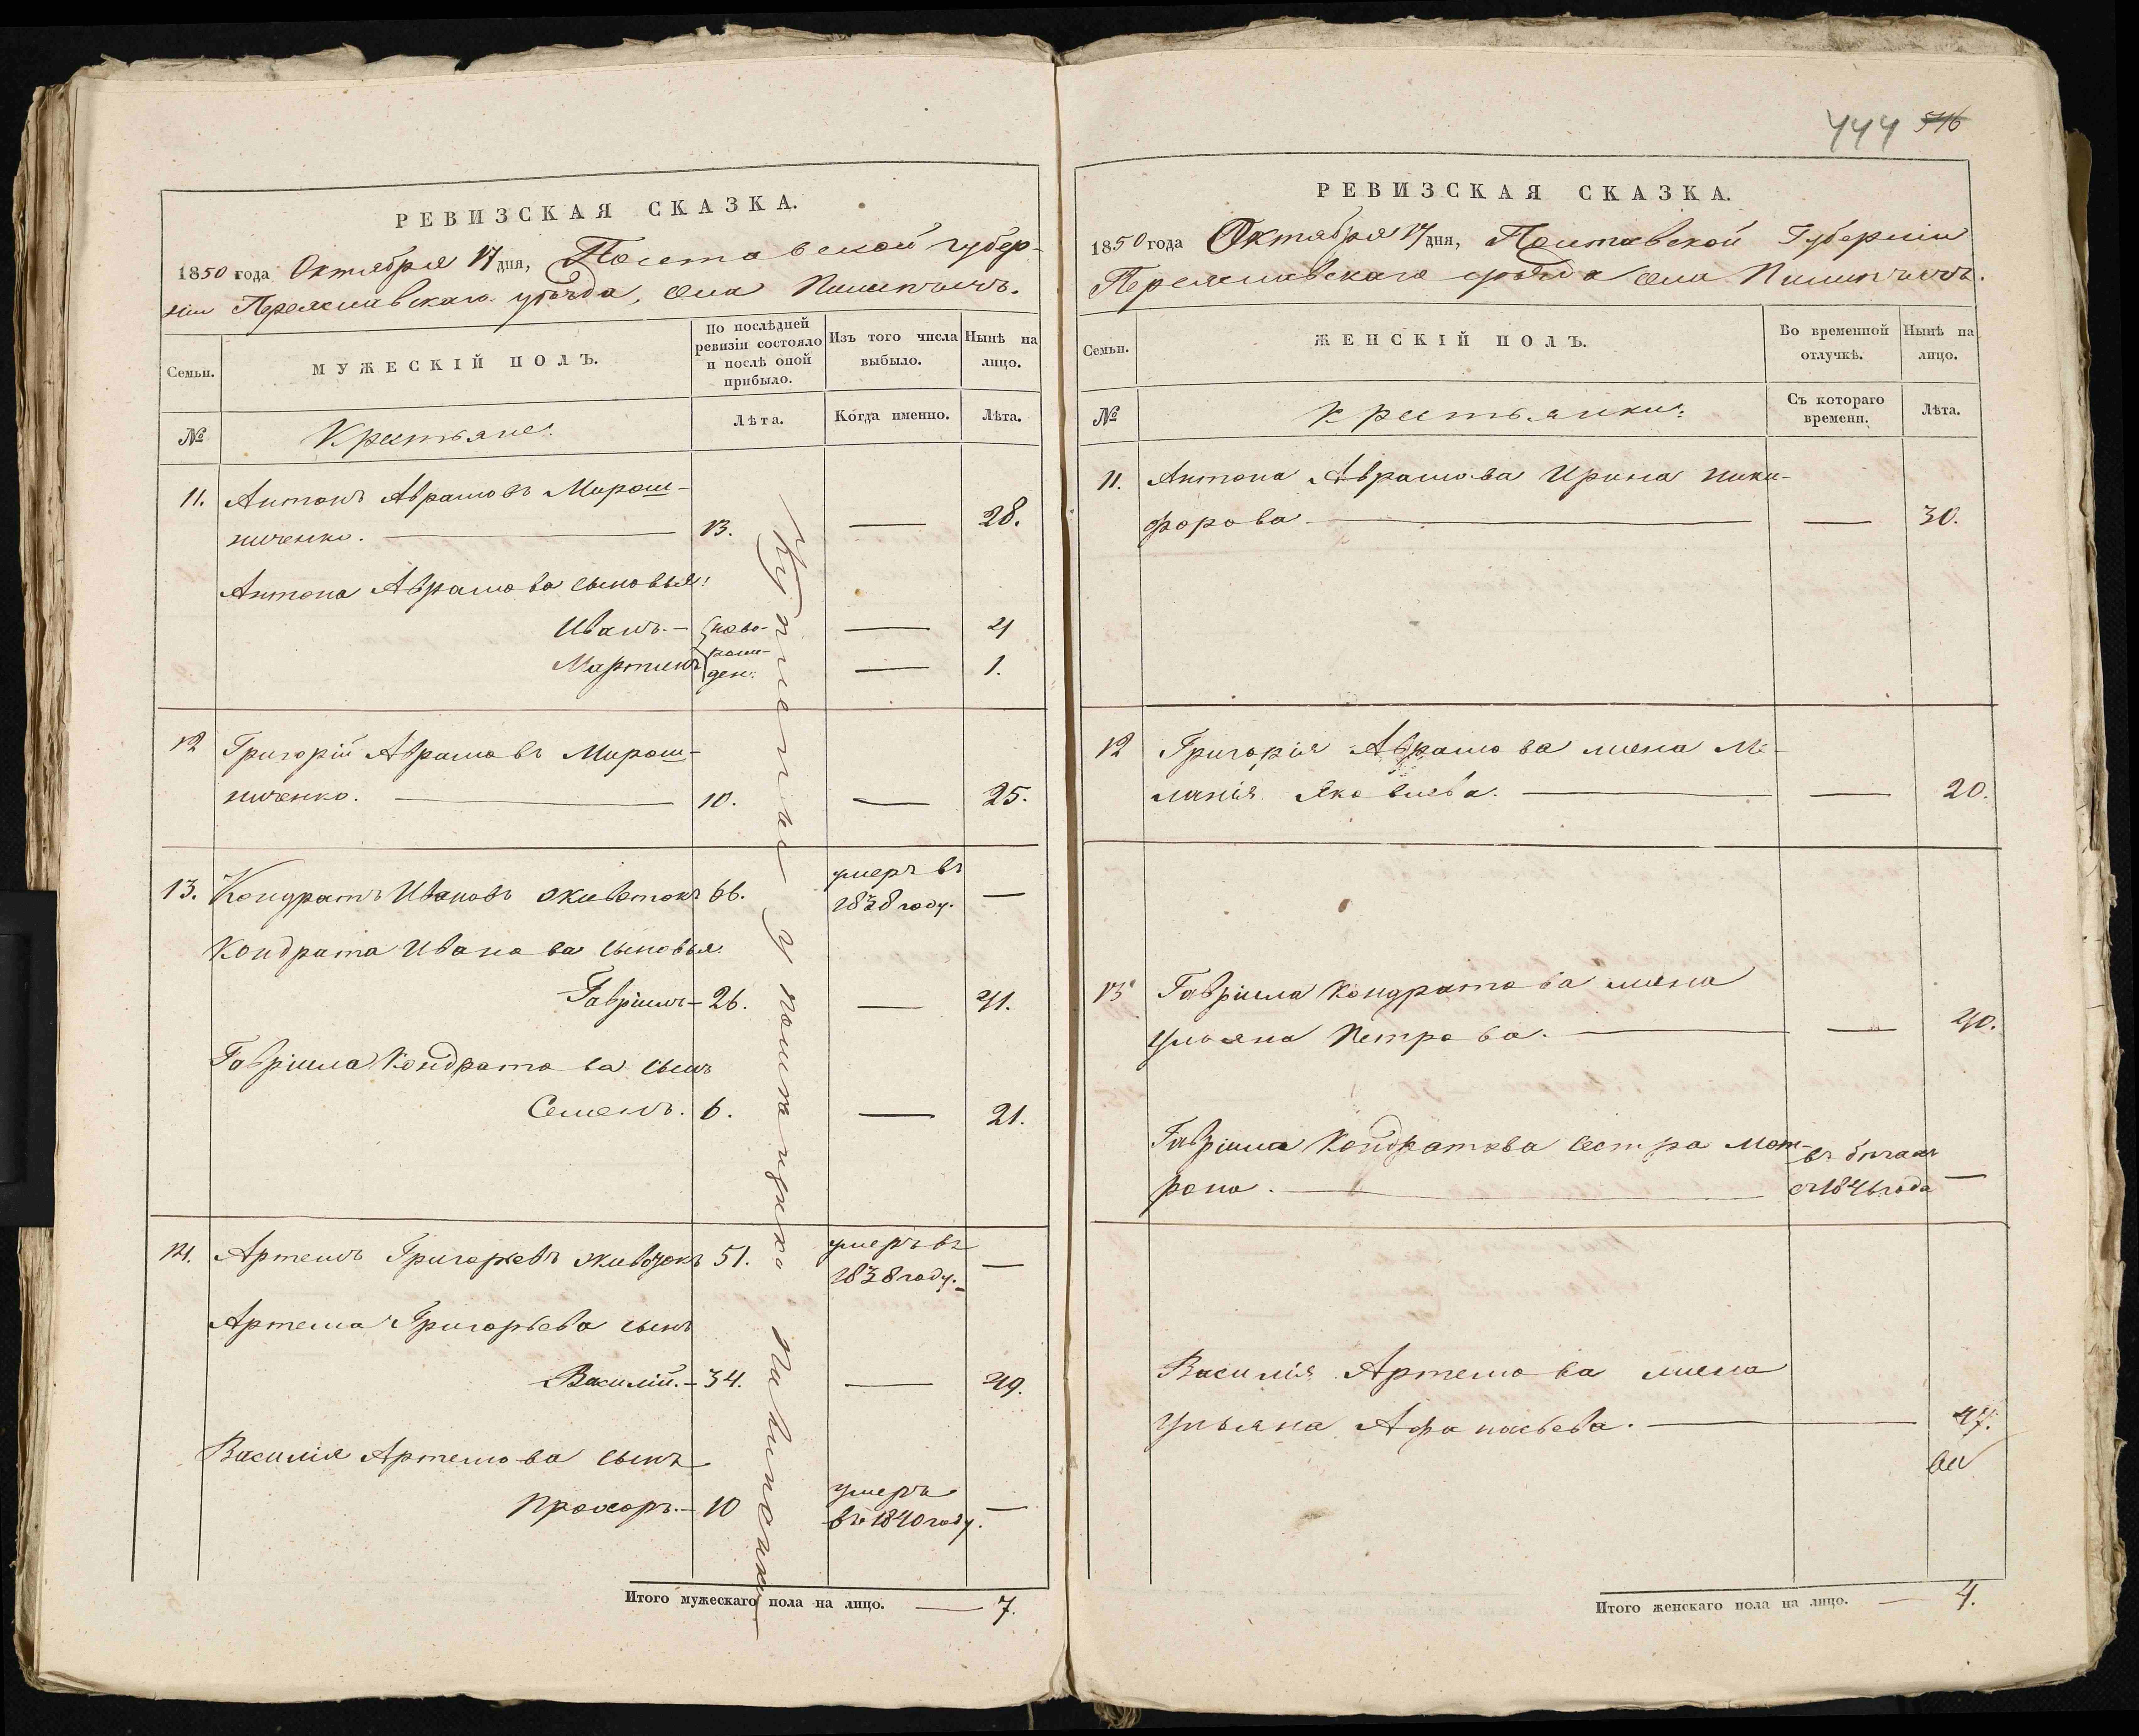 РЕВИЗСКАЯ СКАЗКА.
1850 года Октября 17 дня, Полтавской губер-
ніи Переяславскаго уѣзда, села
Семьи.
МУЖЕСКІЙ ПОЛЪ.
По послѣдней ревизіи состояло и послѣ оной прибыло.
Изъ того числа выбыло.
Нынѣ на лицо.
№
Крестьяне.
Лѣта.
Когда именно.
Лѣта.
11. Антонъ Аврамовъ Мирош-
ниченко. 13. — 28.
Антона Аврамова сыновья:
Иванъ. — ново- — 4
Мартинъ рож- ден. — 1.
12 Григорій Аврамовъ Мирош-
ниченко. 10. — 25.
13. Кондратъ Ивановъ 66. умеръ въ 1838 году. —
Кондрата Иванова сыновья:
Гавріилъ — 26. — 41.
Гавріила Кондратова сынъ
Семенъ. 6. — 21.
14. Артемъ Григорьевъ 51. умеръ въ 1838 году. —
Артема Григорьева сынъ
Василій. — 34. — 49.
Василія Артемова сынъ
Прохоръ. — 10 умеръ въ 1840 году. —
Купленны у помѣщика
Итого мужескаго пола на лицо. — 7.
444 546
РЕВИЗСКАЯ СКАЗКА.
1850 года Октября 17 дня, Полтавской Губерніи
Переяславскаго уѣзда села
Семьи.
ЖЕНСКІЙ ПОЛЪ.
Во временной отлучкѣ.
Нынѣ на лицо.
№
Крестьянки:
Съ котораго времени.
Лѣта.
11. Антона Аврамова Ирина Ники-
форова — — 30.
12 Григорія Аврамова жена Ме-
ланія Яковлева. — — 20.
13 Гавріила Кондратова жена
Ульяна Петрова. — — 40.
Гавріила Кондратова сестра Мот-
рона. — въ бѣгахъ съ 1846 года —
Василія Артемова жена
Ульяна Афанасьева. — 47.
Итого женскаго пола на лицо. — 4.